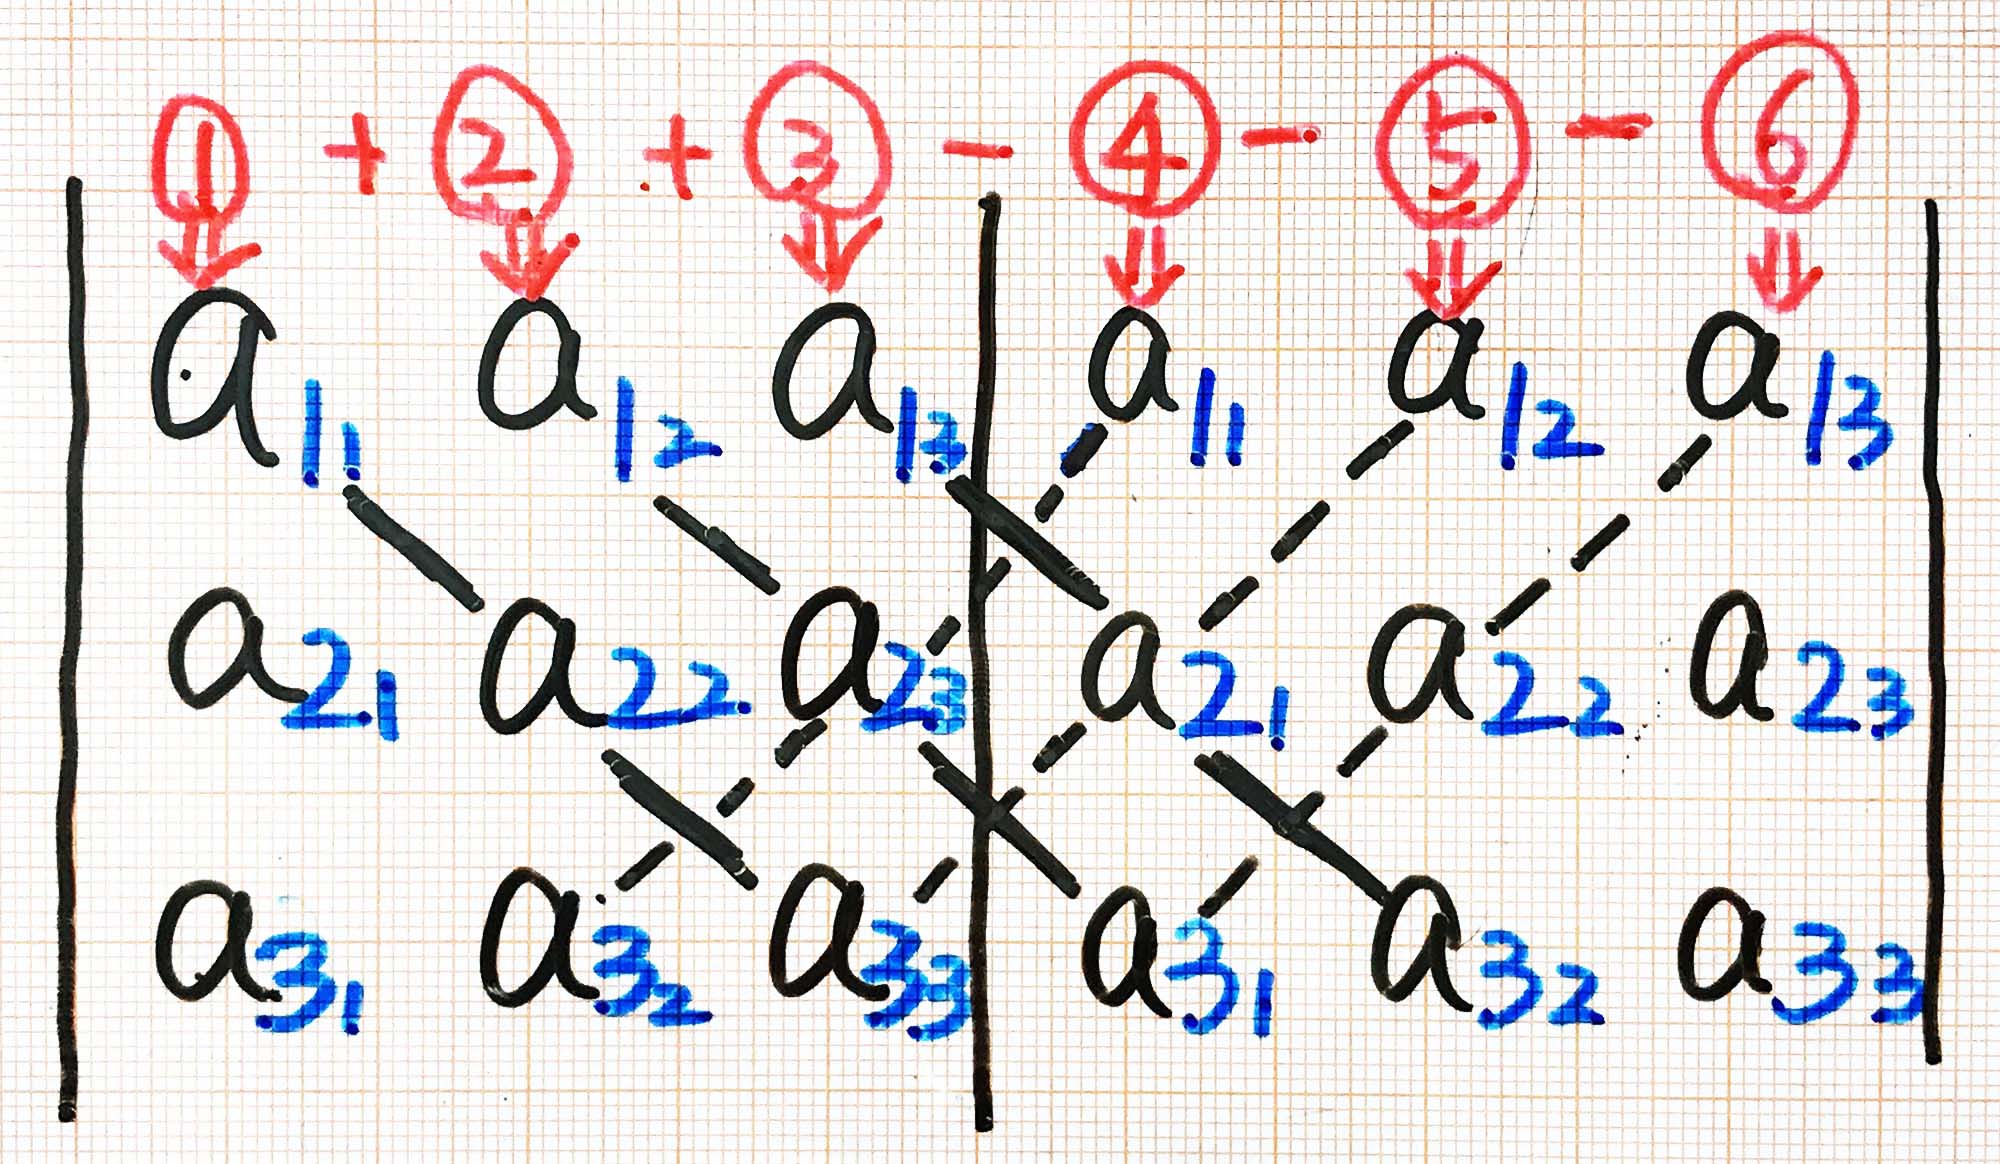 ① + ② + ③ - ④ - ⑤ - ⑥
a₁₁ a₁₂ a₁₃ a₁₁ a₁₂ a₁₃
a₂₁ a₂₂ a₂₃ a₂₁ a₂₂ a₂₃
a₃₁ a₃₂ a₃₃ a₃₁ a₃₂ a₃₃